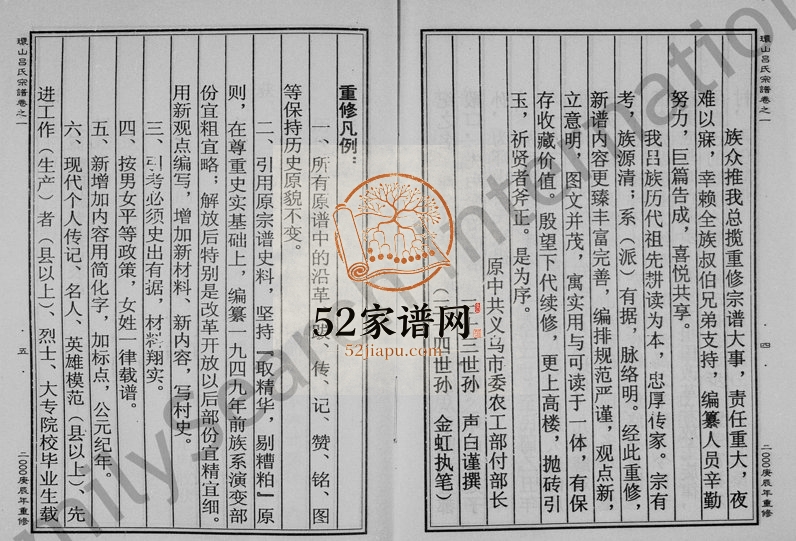 環山吕氏宗譜卷之一
族众推我总揽重修宗谱大事，责任重大，夜
难以寐，幸赖全族叔伯兄弟支持，编纂人员辛勤
努力，巨篇告成，喜悦共享。
我吕族历代祖先耕读为本，忠厚传家。宗有
考，族源清；系（派）有据，脉络明。经此重修，
新谱内容更臻丰富完善，编排规范严谨，观点新，
立意明，图文并茂，寓实用与可读于一体，有保
存收藏价值。殷望下代续修，更上高楼，抛砖引
玉，祈贤者斧正。是为序。
原中共义乌市委农工部付部长
三世孙 声白谨撰
四世孙 金虹执笔）
四
二〇〇〇庚辰年重修
環山吕氏宗譜卷之一
重修凡例：
一、所有原谱中的沿革、跋、传、记、赞、铭、图
等保持历史原貌不变。
二、引用原宗谱史料，坚持『取精华，剔糟粕』原
则，在尊重史实基础上，编纂一九四九年前族系演变部
份宜粗宜略；解放后特别是改革开放以后部份宜精宜细。
用新观点编写，增加新材料、新内容，写村史。
三、引考必须史出有据，材料翔实。
四、按男女平等政策，女姓一律载谱。
五、新增加内容用简化字，加标点，公元纪年。
六、现代个人传记、名人、英雄模范（县以上）、先
进工作（生产）者（县以上）、烈士、大专院校毕业生载
五
二〇〇〇庚辰年重修
52家谱网
52jiapu.com